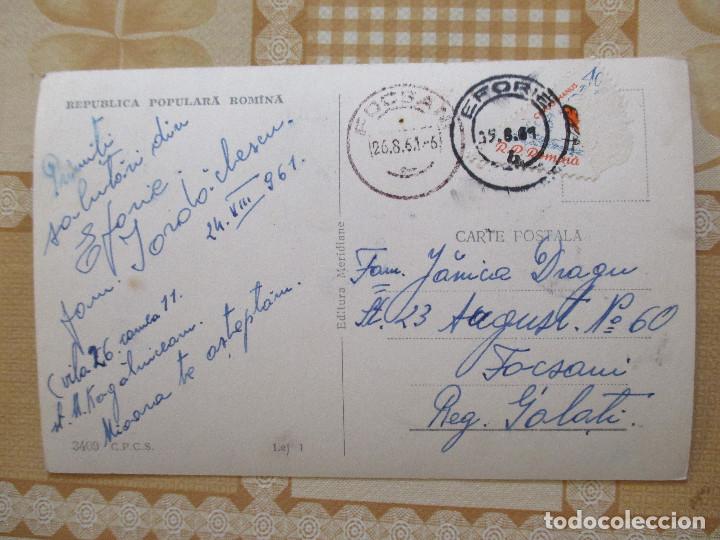 REPUBLICA POPULARĂ ROMÎNĂ
Primiți
salutări din
Eforie.
fam. Iordăchescu.
24. VIII 961.
(vila 26 camea 11.
st. M. Kogălniceanu.
Mioara te așteptăm.
3400 C.P.C.S.
Lei 1
Editura Meridiane
FOCSANI
26.8.61-6
EFORIE
R.P. Romînă
40
CARTE POSTALA
Fam. Jănica Dragu
St. 23 August. No 60
Focsani
Reg. Galați.
todocoleccion
todocoleccion.net